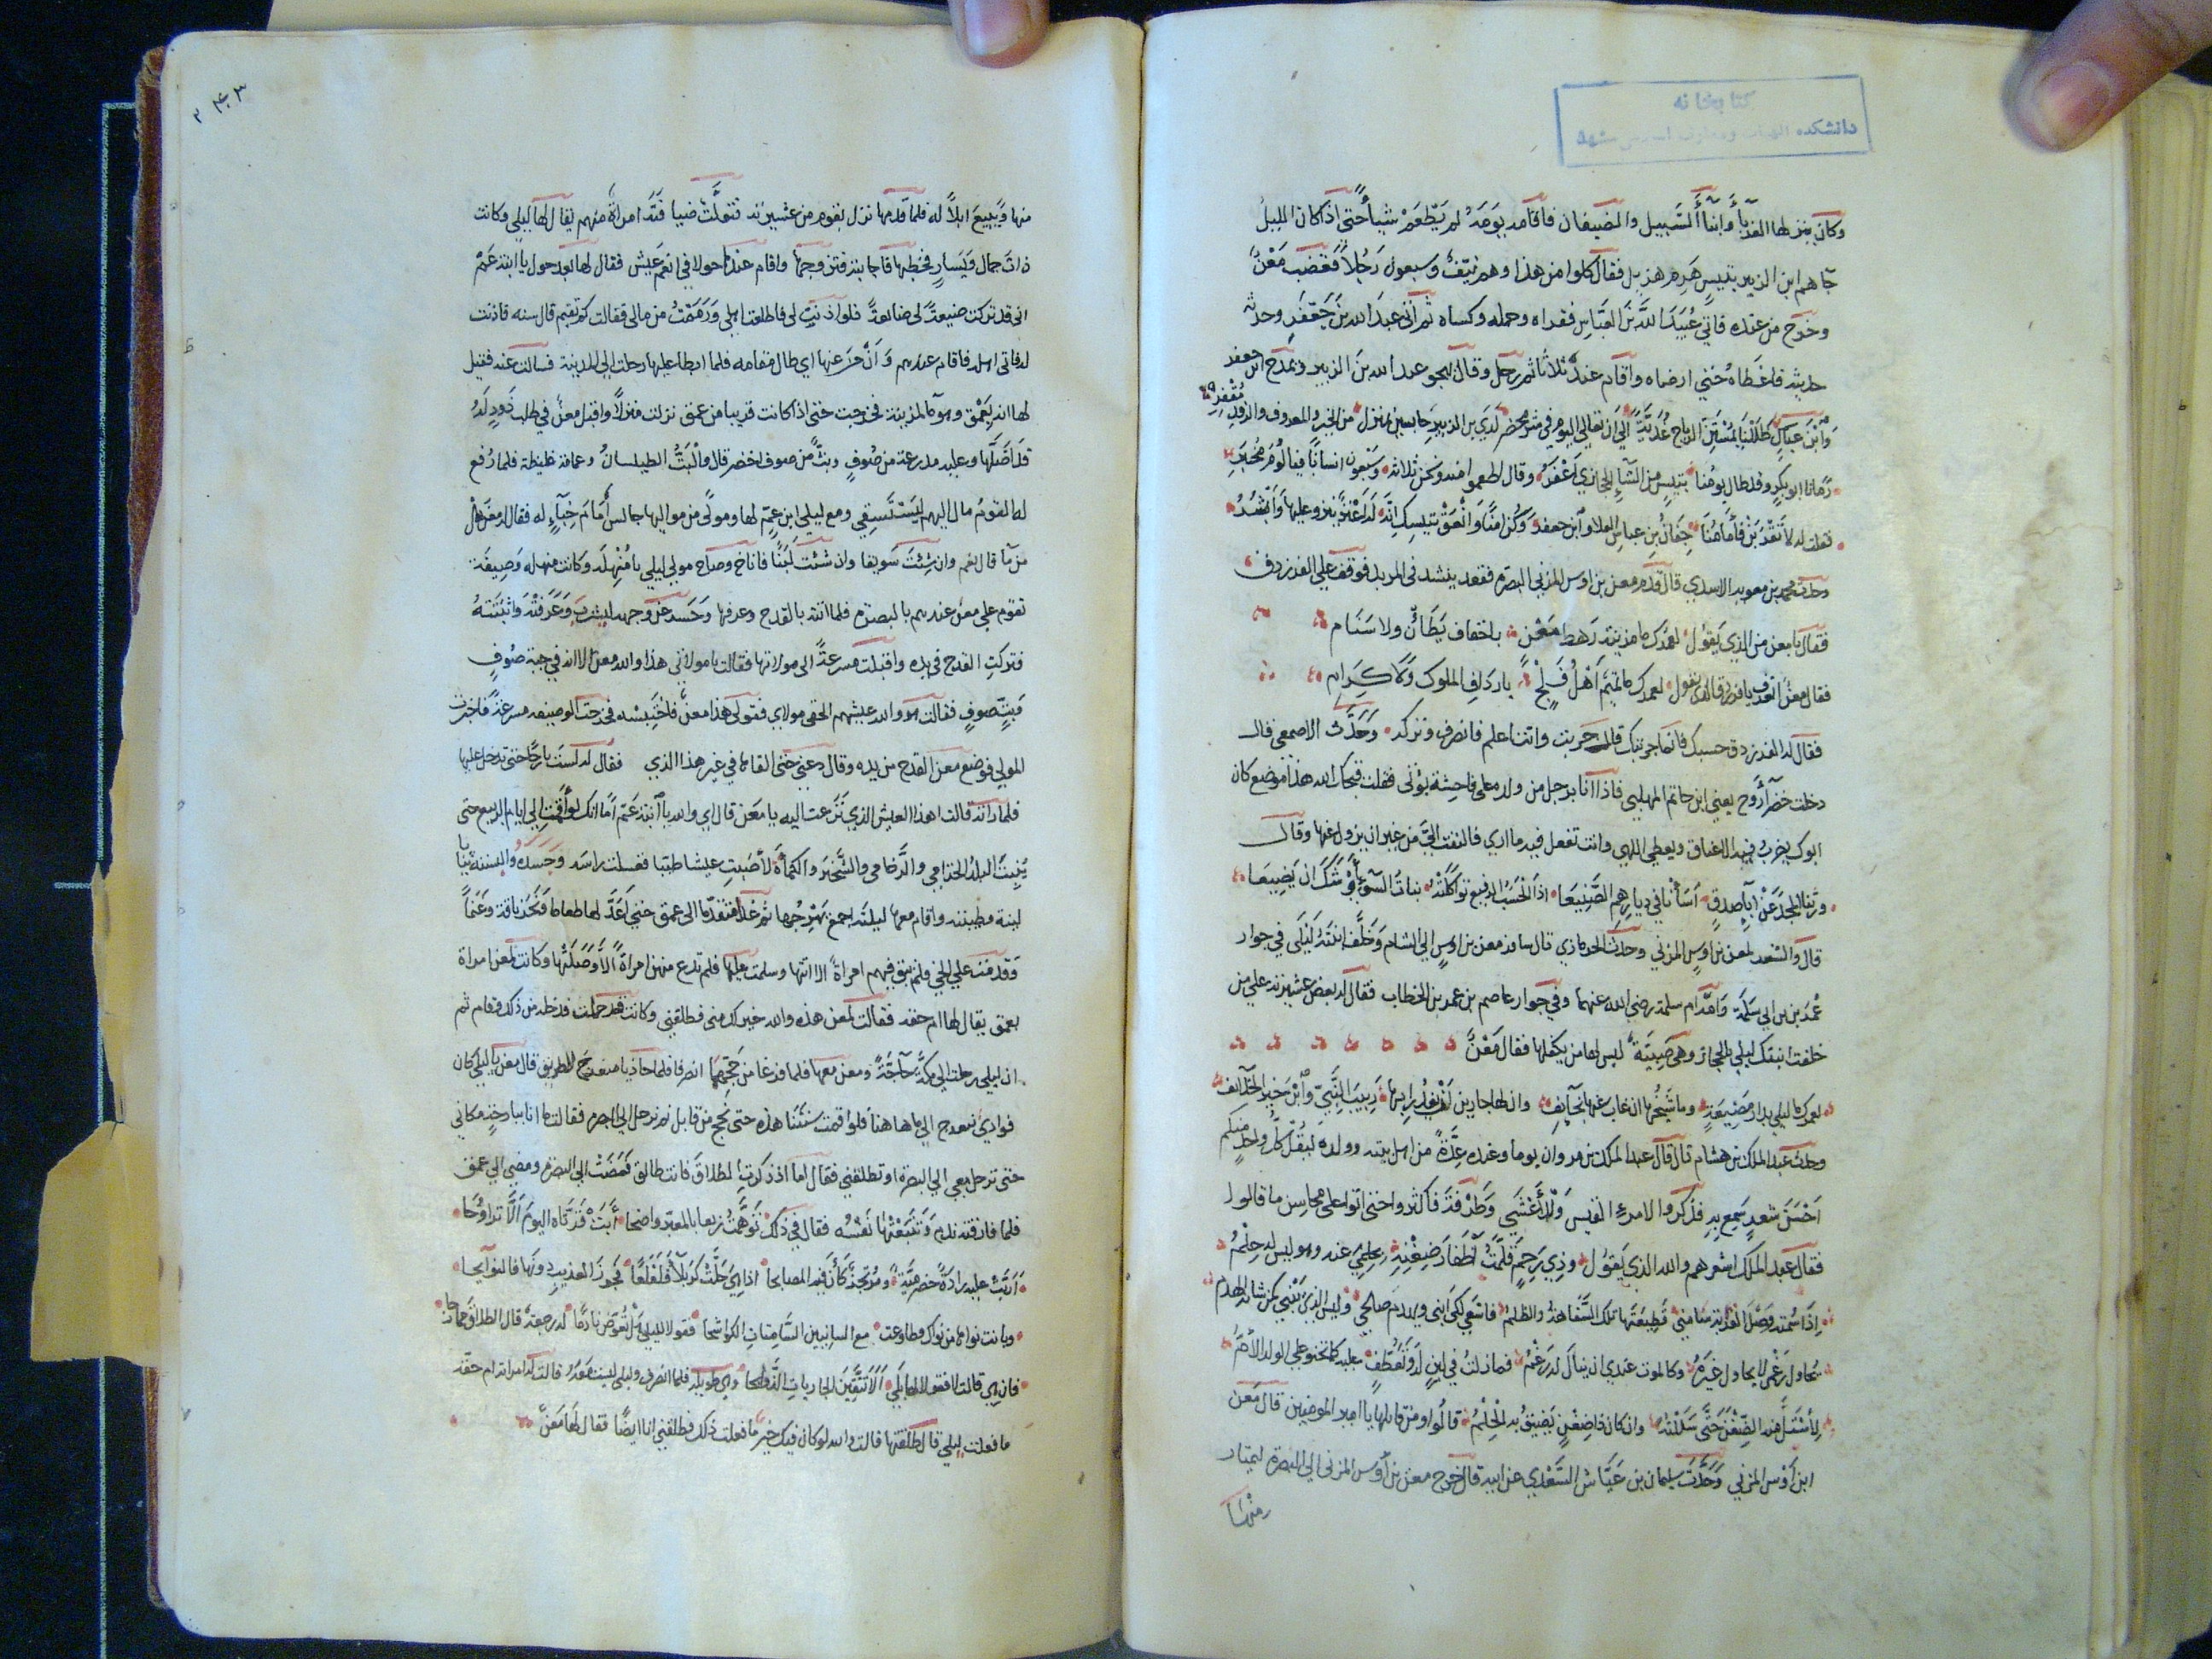 كتابخانه
دانشكده
وكان ينزلها الغرباء وابناء السبيل والضيفان فاقام يومه لم يطعم شيأ حتى اذا كان الليل
جاهم ابن الزبير بتيس هرم هزيل فقال كلوا من هذا وهم نيف وسبعون رجلا فغضب معن
وخرج من عنده فاتى عبيد الله بن العباس فقراه وحمله وكساه ثم اتى عبد الله بن جعفر وحدثه
حديثه فاعطاه حتى ارضاه واقام عنده ثلاثا ثم رحل وقال يهجو عبد الله بن الزبير ويمدح ابن جعفر
وابن عباس ظللنا بمستن الرياح غدية الى ان تعالى اليوم في شر محضر لدى ابن الزبير حابسين بمنزل من الخير والمعروف والرفد مقفر
رمانا ابو بكر وقد طال يومنا بتيس من الشاء الحجازي اعفر وقال اطعموا منه ونحن ثلاثة وسبعون انسانا فيا لؤم مخبر
فقلت له لا تقربن فامامنا جفان بن عباس العلا وابن جعفر وكن امنا وانعق بتيسك انه له اعنز ينزو عليها وابشر
وحدث محمد بن معوية الاسدي قال قدم معن بن اوس المزني البصرة فقعد ينشد في المربد فوقف على الفرزدق
فقال يا معن من الذي يقول لعمرك ما مزينة رهط معن باخفاف يطأن ولا سنام
فقال معن اتعرف يا فرزدق الذي يقول لعمرك ما تميم اهل فلج باردف الملوك ولا كرام
فقال له الفرزدق حسبك فانما جربتك قال جربت وانت اعلم فانصرف وتركه وحدث الاصمعي قال
دخلت خضرآ روح يعني ابن حاتم المهلبي فاذا انا برجل من ولده على فاحشة يؤتى فقلت قبحك الله هذا موضع كان
ابوك يضرب فيه الاعناق ويعطي اللهى وانت تفعل فيه ما ارى فالتفت الي من غير ان يزول عنها وقال
ورثنا المجد عن آباء صدق اسأنا في ديارهم الصنيعا اذا الحسب الرفيع تواكلته بنات السوء اوشك ان يضيعا
قال والشعر لمعن بن اوس المزني وحدث الحرمازي قال سافر معن بن اوس الى الشام وخلف ابنته ليلى في جوار
عمر بن ابي سلمة وامه ام سلمة رضي الله عنهما وفي جوار عاصم بن عمر بن الخطاب فقال له بعض عشيرته على من
خلفت ابنتك ليلى بالحجاز وهي صبية ليس لها من يكفلها فقال معن
لعمرك ما ليلى بدار مضيعة وما شيخها ان غاب عنها بخائف وان لها جارين لن يغدرا بها ربيب النبي وابن خير الخلائف
وحدث عبد الملك بن هشام قال قال عبد الملك بن مروان يوما وعنده عدة من اهل بيته وولده ليقل كل واحد منكم
احسن شعر سمع به فذكروا لامرء القيس والاعشى وطرفة فاكثروا حتى اتوا على محاسن ما قالوا
فقال عبد الملك اشعرهم والله الذي يقول وذي رحم قلمت اظفار ضغنه بحلمي عنه وهو ليس له حلم
اذا سمته وصل القرابة سامني قطيعتها تلك السفاهة والظلم فاسعى لكي ابني ويهدم صالحي وليس الذي يبني كمن شانه الهدم
يحاول رغمي لا يحاول غيره وكالموت عندي ان ينال له رغم فما زلت في لين له وتعطف عليه كما تحنو على الولد الام
لاستل منه الضغن حتى سللته وان كان ذا ضغن يضيق به الحلم قالوا ومن قايلها يا امير المومنين قال معن
ابن اوس المزني وحدث سليمان بن عياش السعدي عن ابيه قال خرج معن بن اوس المزني الى البصرة ليمتار
منها
٤٠٣
منها ويبيع ابلا له فلما قدمها نزل بقوم من عشيرته فتولت ضيافته امراة منهم يقال لها ليلى وكانت
ذات جمال ويسار فخطبها فاجابته فتزوجها واقام عندها حولا في انعم عيش فقال لها بعد حول يا ابنة عم
اني قد تركت ضيعة لي ضائعة فلو اذنت لي فاطلعت اهلي ورممت من مالي فقالت كم تقيم قال سنة فاذنت
له فاتى اهله فاقام عندهم وازمن عنها اي طال مقامه فلما ابطا عليها رحلت الى المدينة فسالت عنه فقيل
لها انه بعمق وهو ماء لمزينة فخرجت حتى اذا كانت قريبا من عمق نزلت منزلا واقبل معن في طلب ذود له
قد اضلها وعليه مدرعة من صوف وبت من صوف اخضر قال والبت الطيلسان وعمامة غليظة فلما رفع
له القوم مال اليهم ليستسقي ومع ليلى ابن عم لها ومولى من مواليها جالس امام خباء له فقال له معن هل
من ماء قال نعم وان شئت سويقا وان شئت لبنا فاناخ وصاح مولى ليلى يا منهلة وكانت منهلة وصيفة
تقوم على معن عندهم بالبصرة فلما اتته بالقدح وعرفها وحسر عن وجهه ليشرب وعرفته واثبتته
فتركت القدح في يده واقبلت مسرعة الى مولاتها فقالت يا مولاتي هذا والله معن الا انه في جبة صوف
وبت صوف فقالت هو والله عيشهم الحقي مولاي فقولي هذا معن فاحبسه فخرجت الوصيفة مسرعة فاخبرت
المولى فوضع معن القدح من يده وقال دعني حتى القاها في غير هذا الذي فقال له لست بارحا حتى تدخل عليها
فلما راته قالت اهذا العيش الذي نزعت اليه يا معن قال اي والله يا ابنة عم اما انك لو اقمت الى ايام الربيع حتى
ينبت البلد الخزامى والرخامى والسخبر والكمأة لاصبت عيشا طيبا فغسلت راسه وجسده والبسته ثيابا
لينة وطيبته واقام معها ليلته اجمع يهرجها ثم غدا متقدما الى عمق حتى اعد لها طعاما ونحر ناقة وغنما
وقدمت على الحي فلم يبق فيهم امراة الا اتتها وسلمت عليها فلم تدع منهن امراة الا وصلتها وكانت لمعن امراة
بعمق يقال لها ام حقة فقالت لمعن هذه والله خير لك مني فطلقني وكانت قد حملت فدخله من ذلك وقام ثم
ان ليلى رحلت الى مكة حاجة ومعن معها فلما فرغا من حجهما انصرفا فلما حاذيا منعرج الطريق قال معن يا ليلى كان
فوادي ينعرج الى ما هاهنا فلو اقمت سنتنا هذه حتى نحج من قابل ثم نرحل الى البصرة فقالت ما انا ببارحة مكاني
حتى ترحل معي الى البصرة او تطلقني فقال اما اذ ذكرت الطلاق فانت طالق فمضت الى البصرة ومضى الى عمق
فلما فارقته ندم وتتبعتها نفسه فقال في ذلك توهمت ربعا بالمعبر واضحا ابت قرتاه اليوم الا تراوحا
اربت عليه رادة حضرمية ومرتجز كأن فيه المصابحا اذا هي حلت كربلا فلعلعا فجوز العذيب دونها فالنوائحا
وبانت نواها من نواك وطاوعت مع الشانيين الشامتات الكواشحا فقولا لليلى هل تعوض نادما له رجعة قال الطلاق ممازحا
فان هي قالت لا فقولا لها بلى الا تتقين الجاريات الذوابحا وهي طويلة فلما انصرف وليلى ليست معه قالت له امراته ام حقة
ما فعلت ليلى قال طلقتها قالت والله لو كان فيك خير ما فعلت ذلك فطلقني انا ايضا فقال لها معن